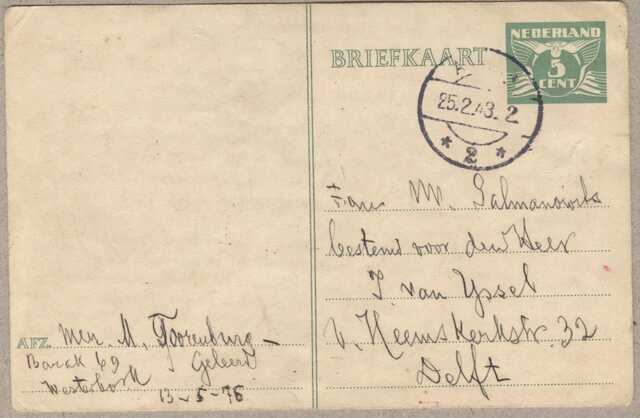 NEDERLAND
5
CENT
BRIEFKAART
25.2.43. 2
* 2 *
Fam M. Salmanowitz
bestemd voor den Heer
J. van Yssel
v. Heemskerkstr. 32
Delft
AFZ. Mevr. M. Toorenburg-
Geleerd
Barak 69
Westerbork
13-5-76